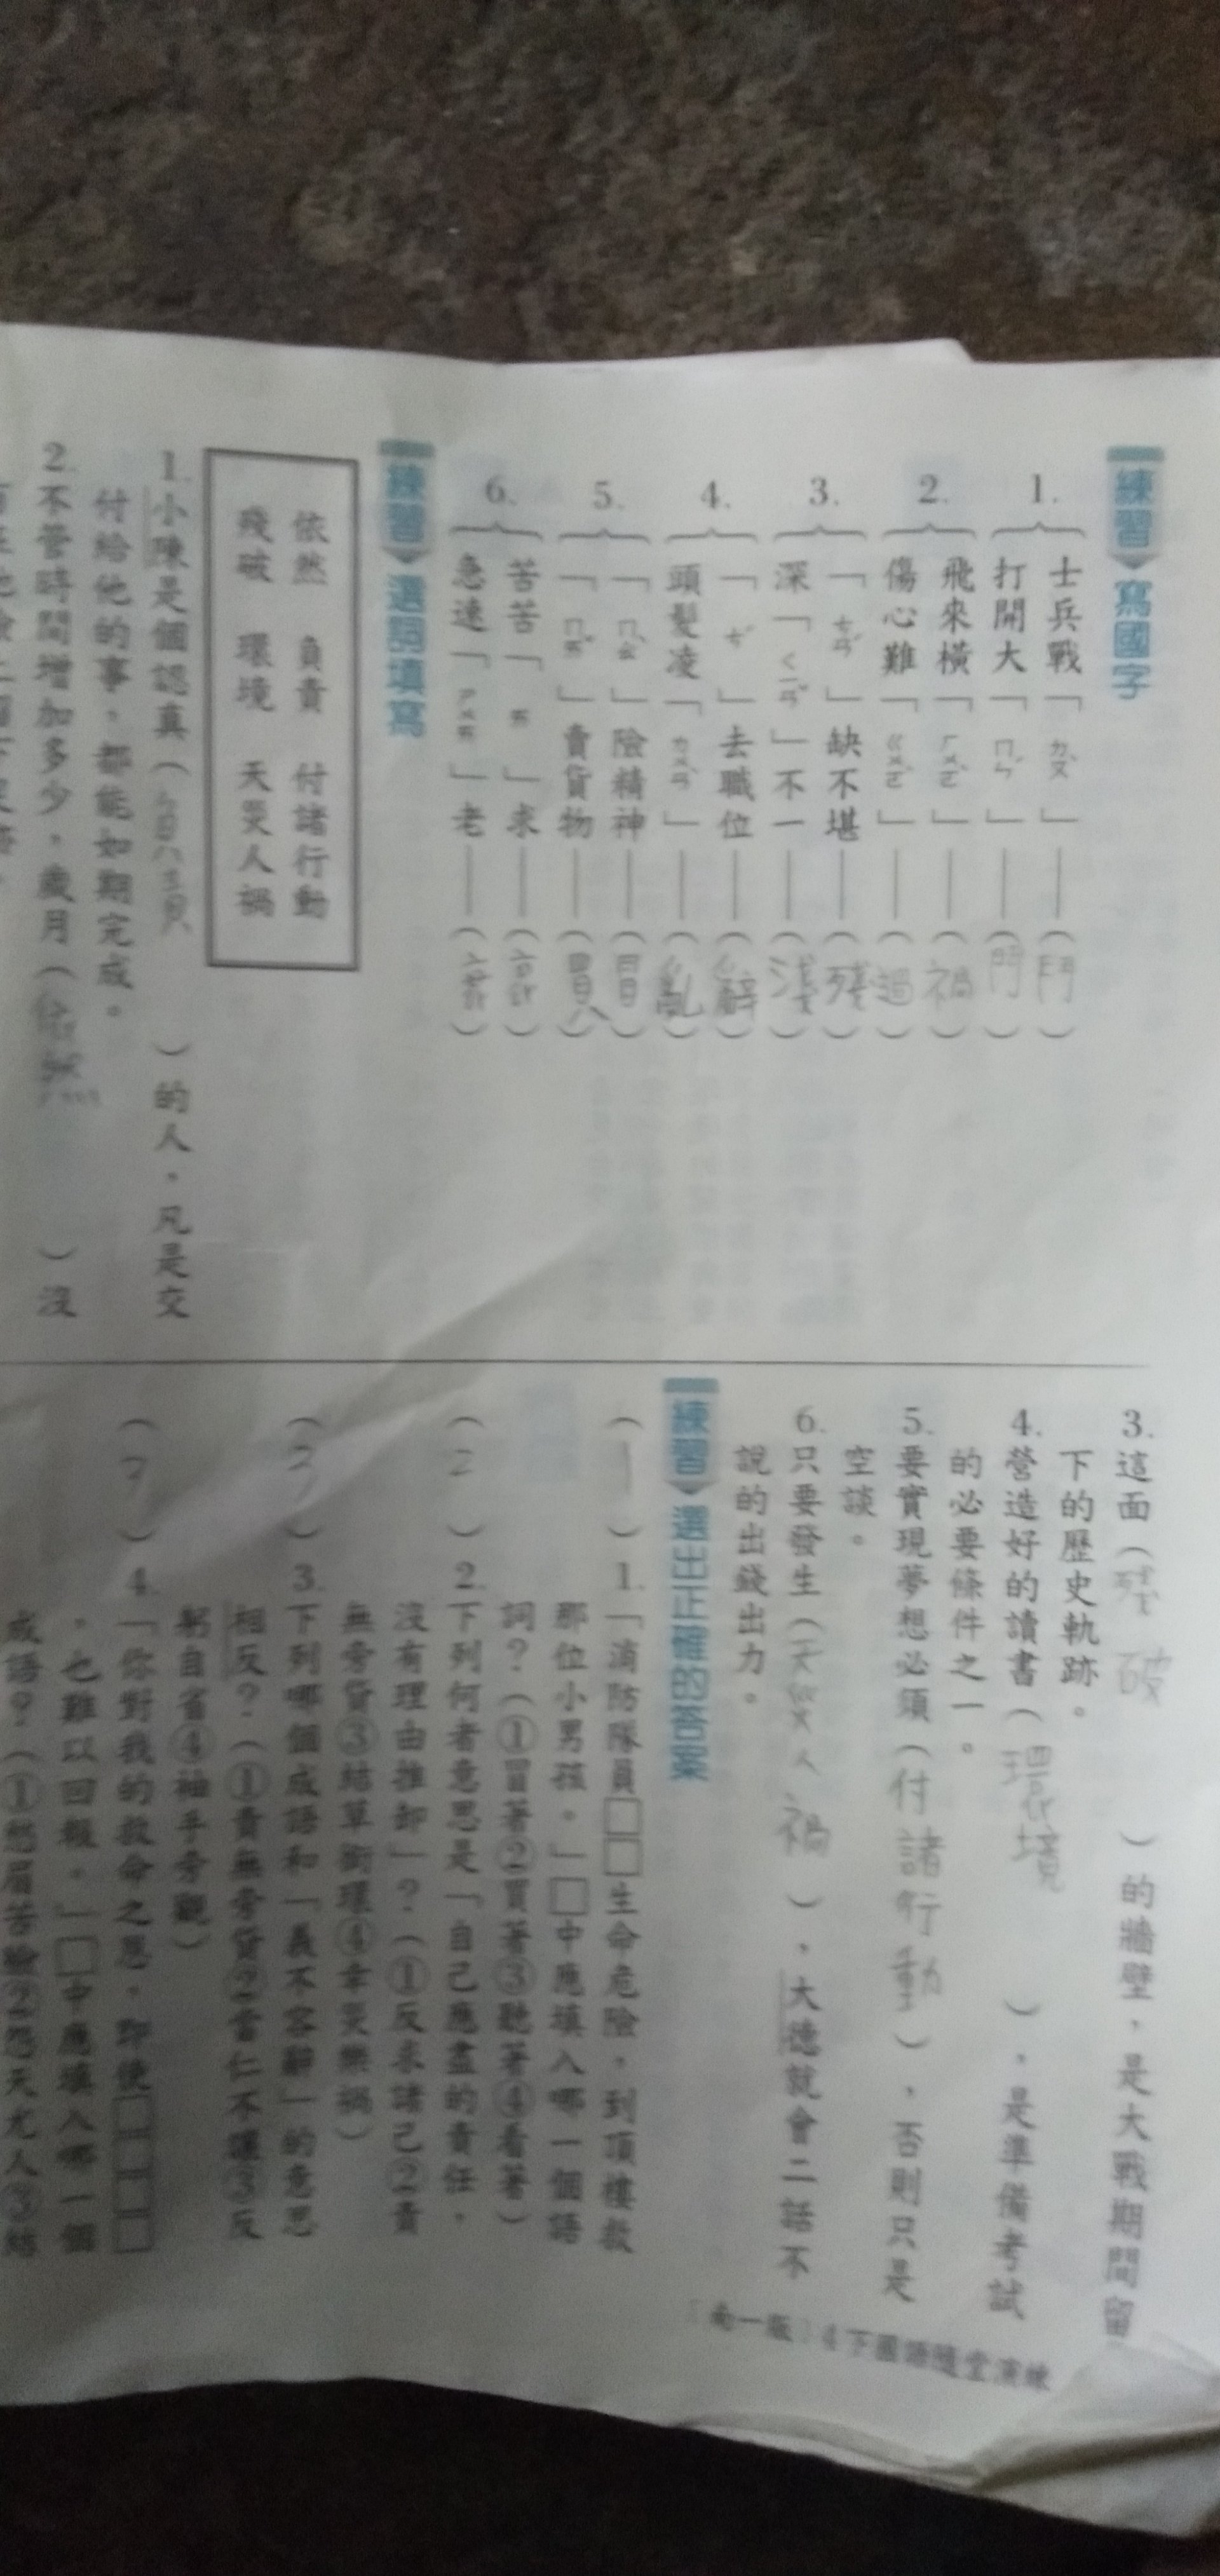 練習 寫國字
1. 士兵戰「ㄉㄡˋ」——(鬥)
打開大「ㄇㄣˊ」——(門)
2. 飛來橫「ㄏㄨㄛˋ」——(禍)
傷心難「ㄍㄨㄛˋ」——(過)
3. 「ㄘㄢˊ」缺不堪——(殘)
深「ㄑㄧㄢˇ」不一——(淺)
4. 「ㄘˊ」去職位——(辭)
頭髮凌「ㄌㄨㄢˋ」——(亂)
5. 「ㄇㄠˋ」險精神——(冒)
「ㄇㄞˇ」賣貨物——(買)
6. 苦苦「ㄞ」求——( )
急速「ㄕㄨㄞ」老——( )
練習 選詞填寫
依然 負責 付諸行動
殘破 環境 天災人禍
1. 小陳是個認真(負責)的人,凡是交
付給他的事,都能如期完成。
2. 不管時間增加多少,歲月(依然)沒
3. 這面(殘破)的牆壁,是大戰期間留
下的歷史軌跡。
4. 營造好的讀書(環境),是準備考試
的必要條件之一。
5. 要實現夢想必須(付諸行動),否則只是
空談。
6. 只要發生(天災人禍),大德就會二話不
說的出錢出力。
練習 選出正確的答案
(1) 1. 「消防隊員□□生命危險,到頂樓救
那位小男孩。」□中應填入哪一個語
詞?(①冒著②買著③聽著④看著)
(2) 2. 下列何者意思是「自己應盡的責任,
沒有理由推卸」?(①反求諸己②責
無旁貸③結草銜環④幸災樂禍)
( ) 3. 下列哪個成語和「義不容辭」的意思
相反?(①責無旁貸②當仁不讓③反
躬自省④袖手旁觀)
( ) 4. 「你對我的救命之恩,即使□□□□
,也難以回報。」□中應填入哪一個
成語?(①愁眉苦臉②怨天尤人③結
南一版 4下國語隨堂演練